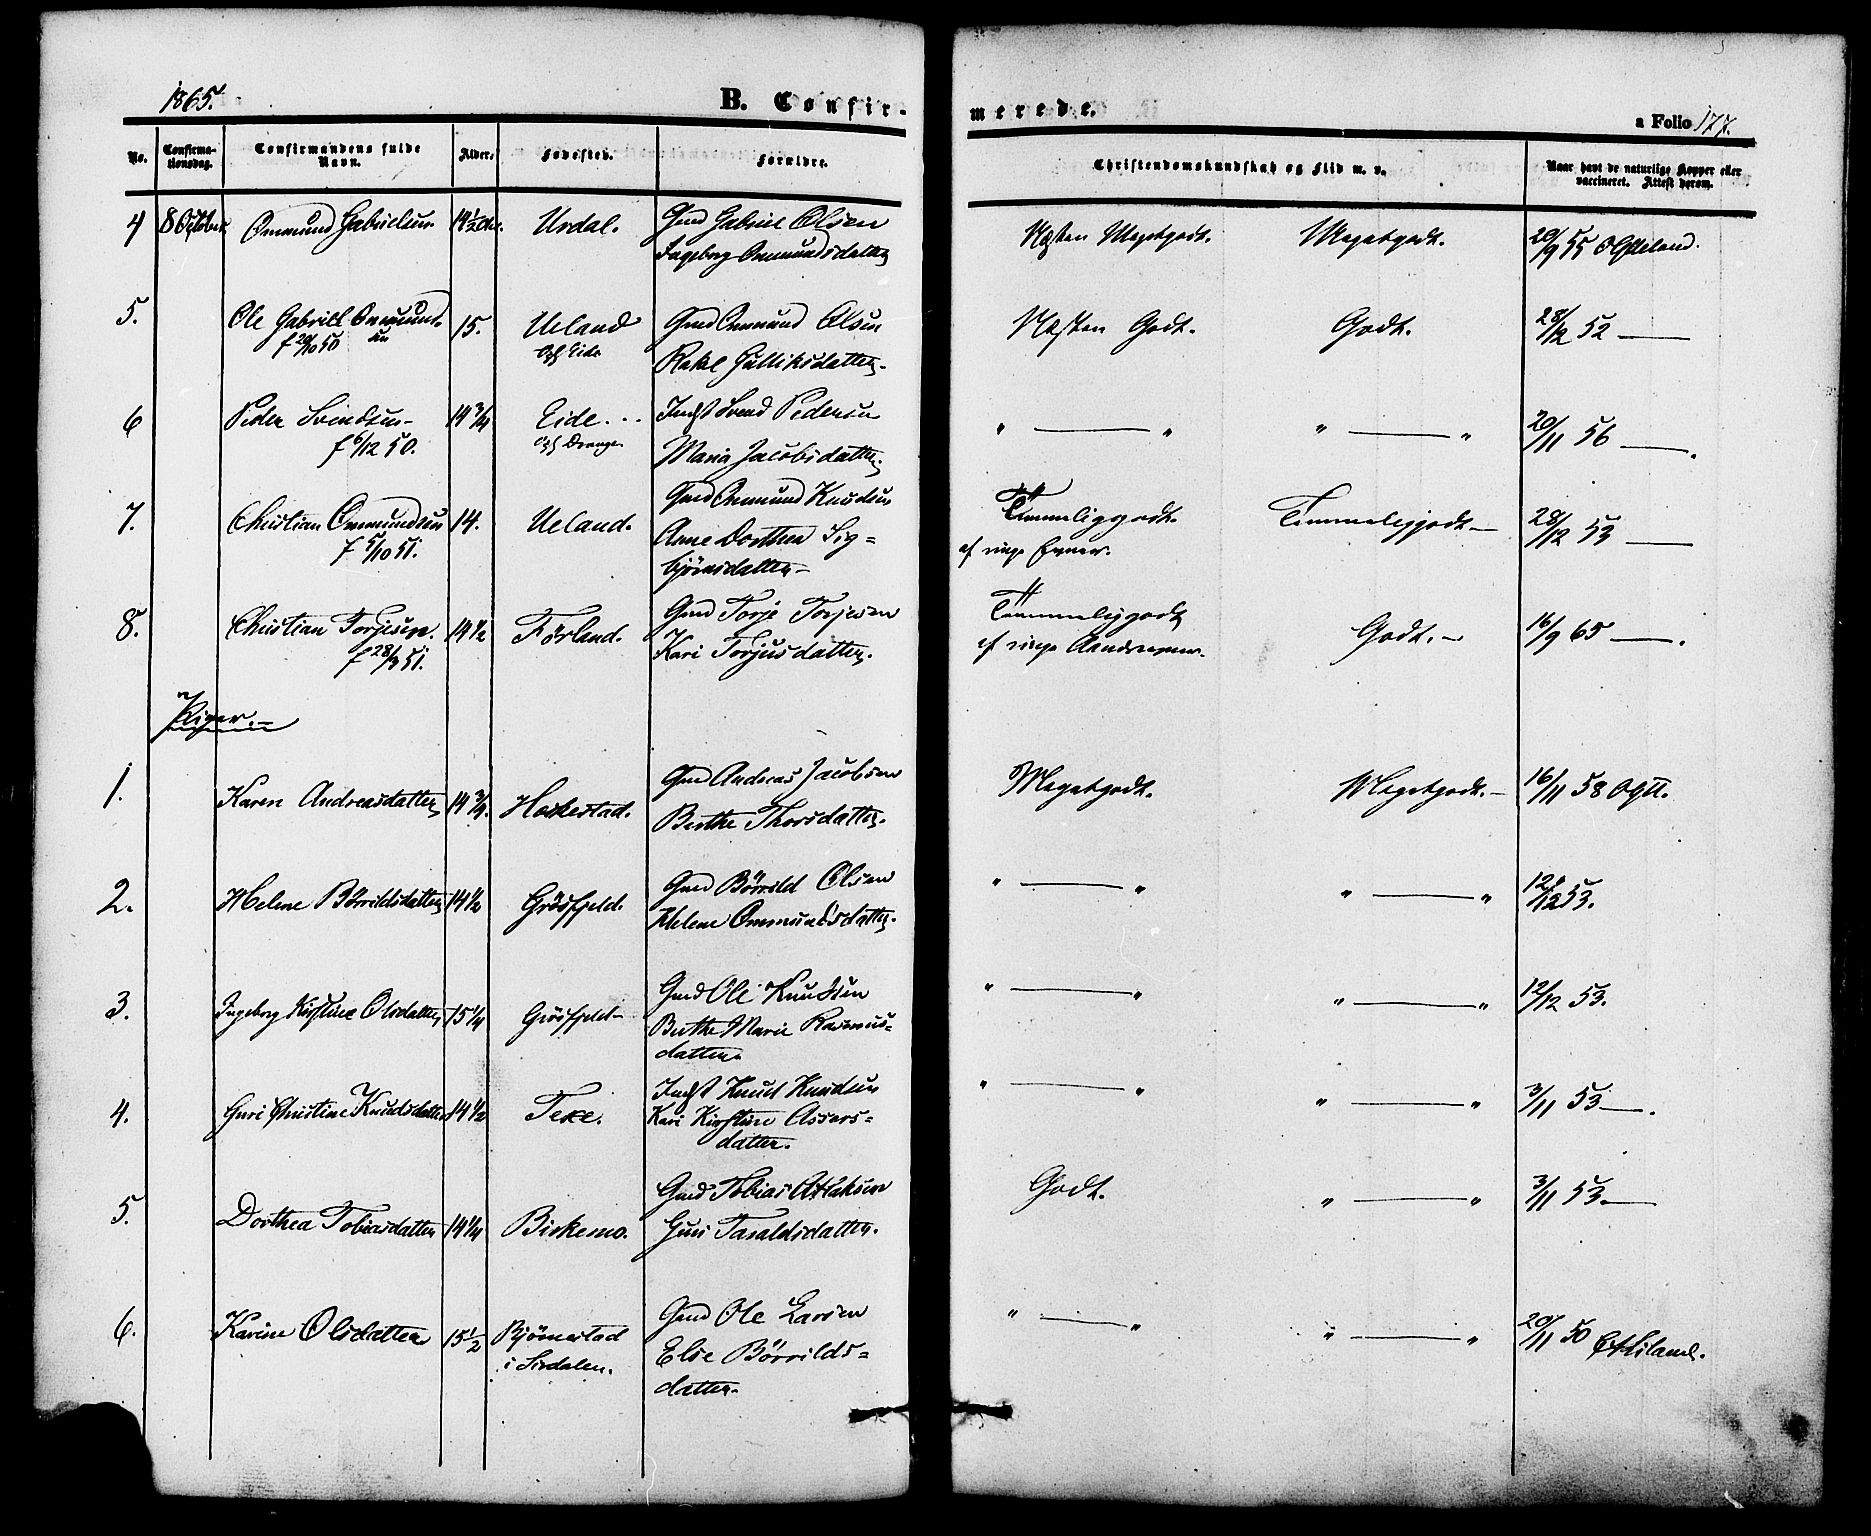 1865.
B. Confir-
merede.
a Folio 177.
No. Confirma-tionsdag. Confirmandens fulde Navn. Alder. Fødested. Forældre. Christendomskundskab og Flid m. v. Naar havt de naturlige Kopper eller vaccineret. Attest derom.
4 8 October Ommund Gabrielsen 14 1/2 Urdal. Gmd Gabriel Olsen
Ingeborg Ommundsdatter
Næsten Megetgodt. Megetgodt. 20/9 55
5. Ole Gabriel Ommund-
sen
f 29/10 50
15. Ueland
Opf Eide
Gmd Ommund Olsen
Rakel Gulliksdatter.
Næsten Godt. Godt. 28/12 52 —
6 Peder Svendsen
f 6/12 50.
14 3/4 Eide...
Opf Drange.
Indst Svend Pedersen
Maria Jacobsdatter.
" — " " — " 20/11 56 —.
7. Christian Ommundsen
f 5/10 51.
14. Ueland.
Gmd Ommund Knudsen
Anne Dorthea Sig=
björnsdatter
Temmeliggodt.
af ringe Evner.
Temmeliggodt — 28/12 53 —
8. Christian Torjesen.
f 28/3 51.
14 1/2 Förland.
Gmd Torje Torjesen
Kari Torjusdatter.
Temmeliggodt
af ringe Aandsevner.
Godt. — 16/9 65 —.
Piger. —
1. Karen Andreasdatter 14 3/4. Haskestad. Gmd Andreas Jacobsen
Berthe Thorsdatter.
Megetgodt. Megetgodt. — 16/11 58
2. Helene Börrildsdatter 14 1/2 Grösfjeld. Gmd Börrild Olsen
Helene Ommundsdatter.
" — " " — " 12/12 53.
3. Ingeborg Kirstine Olsdatter 15 1/4 Grösfjeld — Gmd Ole Knudsen
Berthe Marie Rasmus=
datter.
" — " " — " 12/12 53.
4. Guri Christine Knudsdatter 14 1/2 Texe. Indst Knud Knudsen
Kari Kirstine Assers=
datter.
" — " " — " 3/11 53 —.
5. Dorthea Tobiasdatter 14 1/4 Birkemo. Gmd Tobias Atlaksen
Guri Taraldsdatter.
Godt. " — " 3/11 53. —
6. Karine Olsdatter 15 1/2 Bjørnestad
i Sirdalen.
Gmd Ole Larsen
Else Börrilds=
datter.
" — " " — " 20/11 50